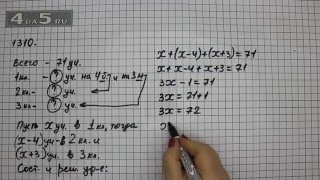 4DA5.RU
1310.
Всего – 71 уч.
1 кл. – ? уч. на 4б и на 3м
2 кл. – ? уч.
3 кл. – ? уч.
Пусть x уч. в 1 кл, тогда
(x-4) уч – в 2 кл. и
(x+3) уч. в 3 кл.
Сост. и реш. ур-е:
x+(x-4)+(x+3)=71
x+x-4+x+3=71
3x-1=71
3x=71+1
3x=72